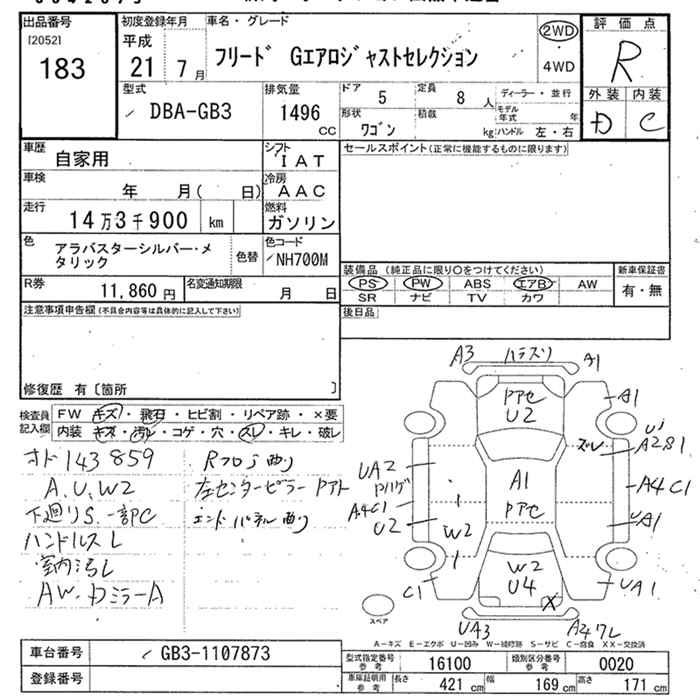 出品番号
[2052]
183
初度登録年月
平成
21 7月
車名・グレード
フリード Gエアロジャストセレクション
2WD
4WD
評価点
R
外装 内装
D C
型式
DBA-GB3
排気量
1496
cc
ドア
5
定員
8 人
形状
ワゴン
積載
kg
ディーラー・並行
モデル年式 年
ハンドル 左・右
車歴
自家用
シフト
IAT
セールスポイント(正常に機能するものに限ります)
車検
年 月( 日)
冷房
AAC
走行
14万3千900 km
燃料
ガソリン
色
アラバスターシルバー・メタリック
色替
色コード
NH700M
装備品(純正品に限り○をつけてください)
PS PW ABS エアB AW
SR ナビ TV カワ
新車保証書
有・無
R券
11,860円
名変通知期限
月 日
後日品
注意事項申告欄(不具合内容等は具体的に記入して下さい)
修復歴 有〔箇所 〕
検査員記入欄
FW キズ・飛石・ヒビ割・リペア跡・×要
内装 キズ・汚レ・コゲ・穴・スレ・キレ・破レ
オド143859
A.U.W2
下廻りS.一部C
ハンドルスレ
室内汚レ
AW.DミラーA
Rフロア曲り
左センターピラーPアト
エンドパネル曲り
A3 ハラズリ A1
Pアセ
U2
A1
A2S1
ズレ
UA2
A1
Pアセ
A4C1
A4C1
U2
W2
UA1
W2
U4
C1
UA1
X
UA3
スペア
A-キズ E-エクボ U-凹み W-補修跡 S-サビ C-腐食 XX-交換済
車台番号
GB3-1107873
登録番号
型式指定番号 参考
16100
類別区分番号 参考
0020
車庫証明用 参考
長さ 421 cm
幅 169 cm
高さ 171 cm